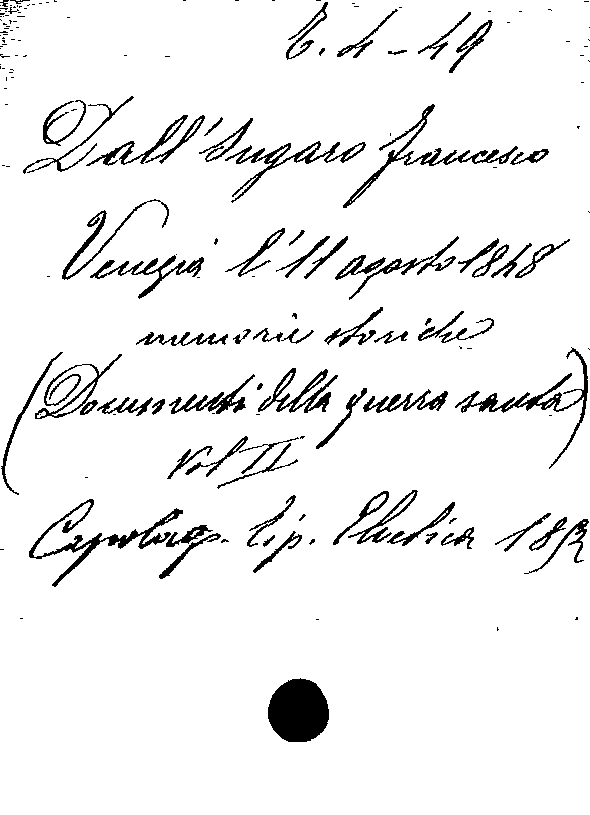 E. 4-49
Dall'Ongaro Francesco
Venezia l'11 agosto 1848
memorie storiche
(Documenti della guerra santa)
Vol II
Capolago. Tip. Elvetica 1850